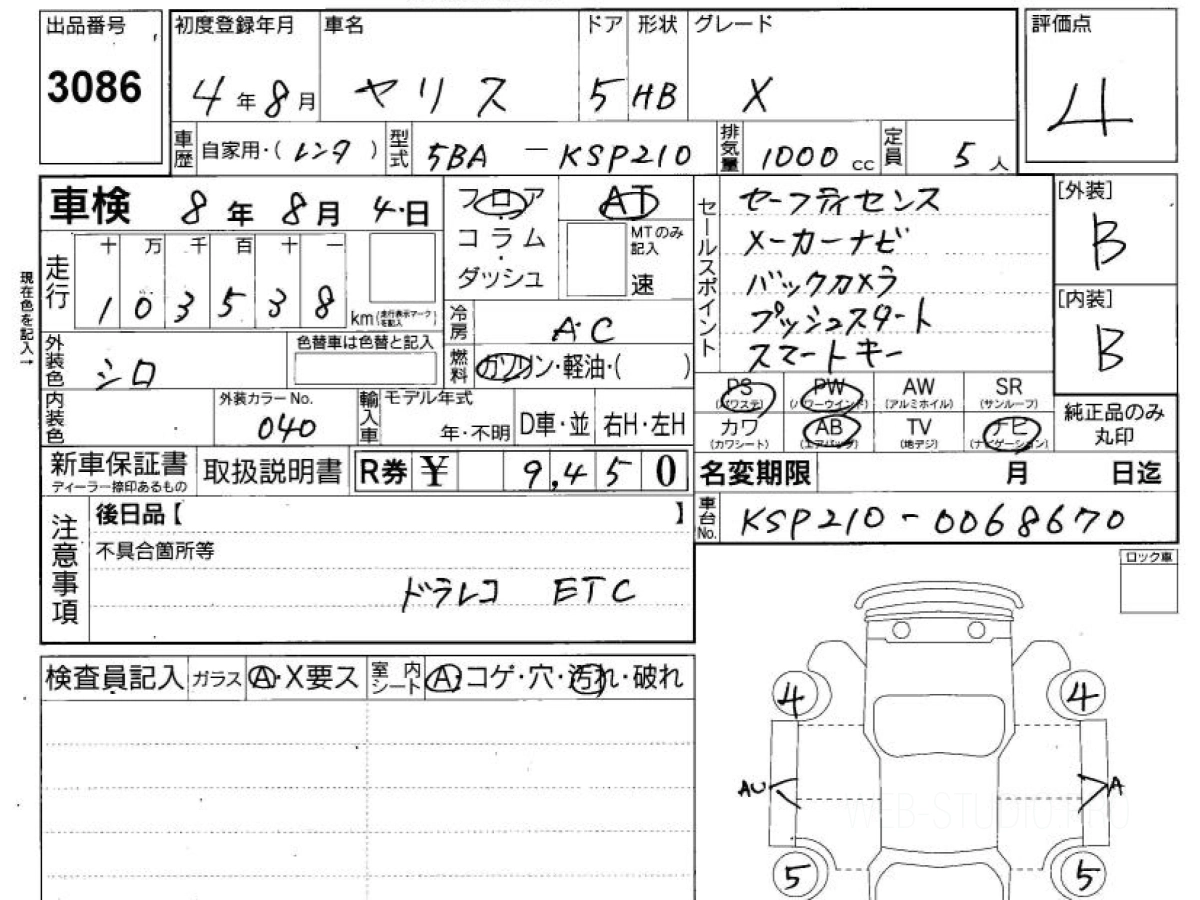 出品番号 初度登録年月 車名 ドア 形状 グレード 評価点
3086 4年8月 ヤリス 5 HB X 4
車歴 自家用・(レンタ) 型式 5BA-KSP210 排気量 1000cc 定員 5人
車検 8年8月4日 フロア AT セールスポイント セーフティセンス [外装]
コラム MTのみ記入 メーカーナビ B
走行 十万千百十一 ダッシュ 速 バックカメラ [内装]
103538 km (走行表示マークを記入) 冷房 AC プッシュスタート B
現在色を記入→
外装色 シロ 色替車は色替と記入 燃料 ガソリン・軽油・( ) スマートキー
PS (パワステ) PW (パワーウインド) AW (アルミホイル) SR (サンルーフ)
内装色 外装カラーNo. 040 輸入車 モデル年式 年・不明 D車・並 右H・左H カワ (カワシート) AB (エアバッグ) TV (地デジ) ナビ (ナビゲーション) 純正品のみ丸印
新車保証書 ディーラー捺印あるもの 取扱説明書 R券 ¥ 9,450 名変期限 月 日迄
注意事項 後日品【 】 車台No. KSP210-0068670
不具合箇所等 ロック車
ドラレコ ETC
検査員記入 ガラス A・X要ス 室内シート A・コゲ・穴・汚れ・破れ
4 4
AU A
WEB-STUDIO PRO
5 5